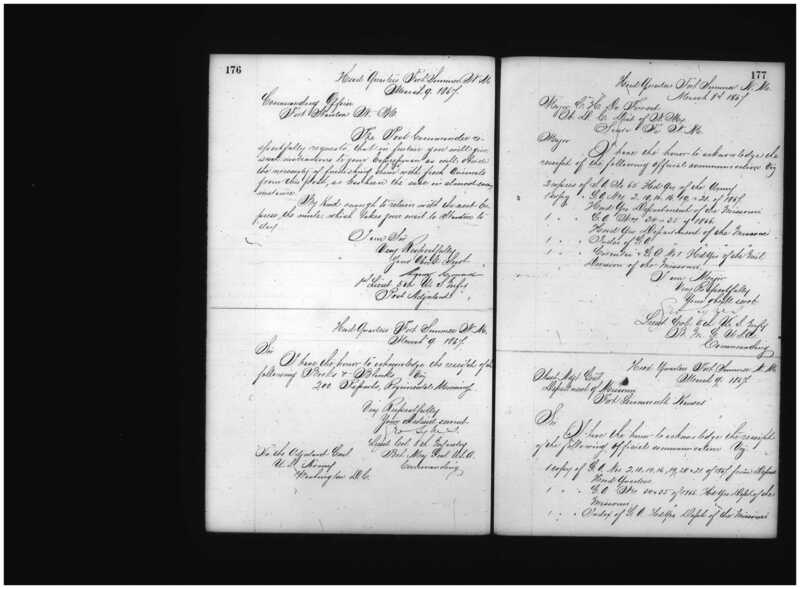 176
Head Quarters Fort Sumner N. M.
March 9. 1867.
Commanding Officer
Fort Stanton N. M.
The Post Commander re-
spectfully requests that in future you will give
such instructions to your Expressmen as will
the necessity of furnishing them with fresh Animals
from this Post, as has been the case in almost every
instance.
Be kind enough to return with the next Ex-
press, the mule, which takes your mail to Stanton to
day.
I am Sir
Very Respectfully
Your Obt. Svt.
1st Lieut 5th U. S. Infty
Post Adjutant
Head Quarters Fort Sumner N. M.
March 9. 1867.
Sir
I have the honor to acknowledge the receipt of the
following Books & Blanks Viz
200 Reports,
Very Respectfully
Your Obedient servant
Lieut Col. 5th Infantry
Bvt. Maj. Genl. U.S.A.
Commanding
To the Adjutant Genl
U. S. Army
Washington D.C.
177
Head Quarters Fort Sumner N. M.
March 9th 1867.
Major C. H. De Forrest
Dist of N. Mex
Santa Fe N. M.
Major
I have the honor to acknowledge the
receipt of the following official communications Viz
2 copies of G.O. No Hd Qrs of the Army
1 copy " G.O. Nos 2, 10, 14, 16, 19, 20 & 21 of 1867
Head Qrs Department of the Missouri
1 " " G.O. Nos of 1866.
Head Qrs Department of the Missouri
1 " " Index of G.O.
1 " " G.O. No 1 Hd Qrs of the Mil.
Division of the Missouri.
I am Major
Very Respectfully
Your obedt servt
Lieut Col. 5th U. S. Infty
B. M. G. U.S.A.
Commanding
Head Quarters Fort Sumner N. M.
March 9. 1867.
Asst Adjt Genl
Department of Missouri
Fort Leavenworth Kansas
Sir
I have the honor to acknowledge the receipt
of the following Official communications Viz
1 copy of G.O. Nos 2, 10, 14, 16, 19, 20 & 21 of 1867 from Depart
Head Quarters
1 " " G.O. Nos of 1866 Hd Qrs Dept of the
Missouri
1 " " Index of G.O. Hd Qrs Dept of the Missouri